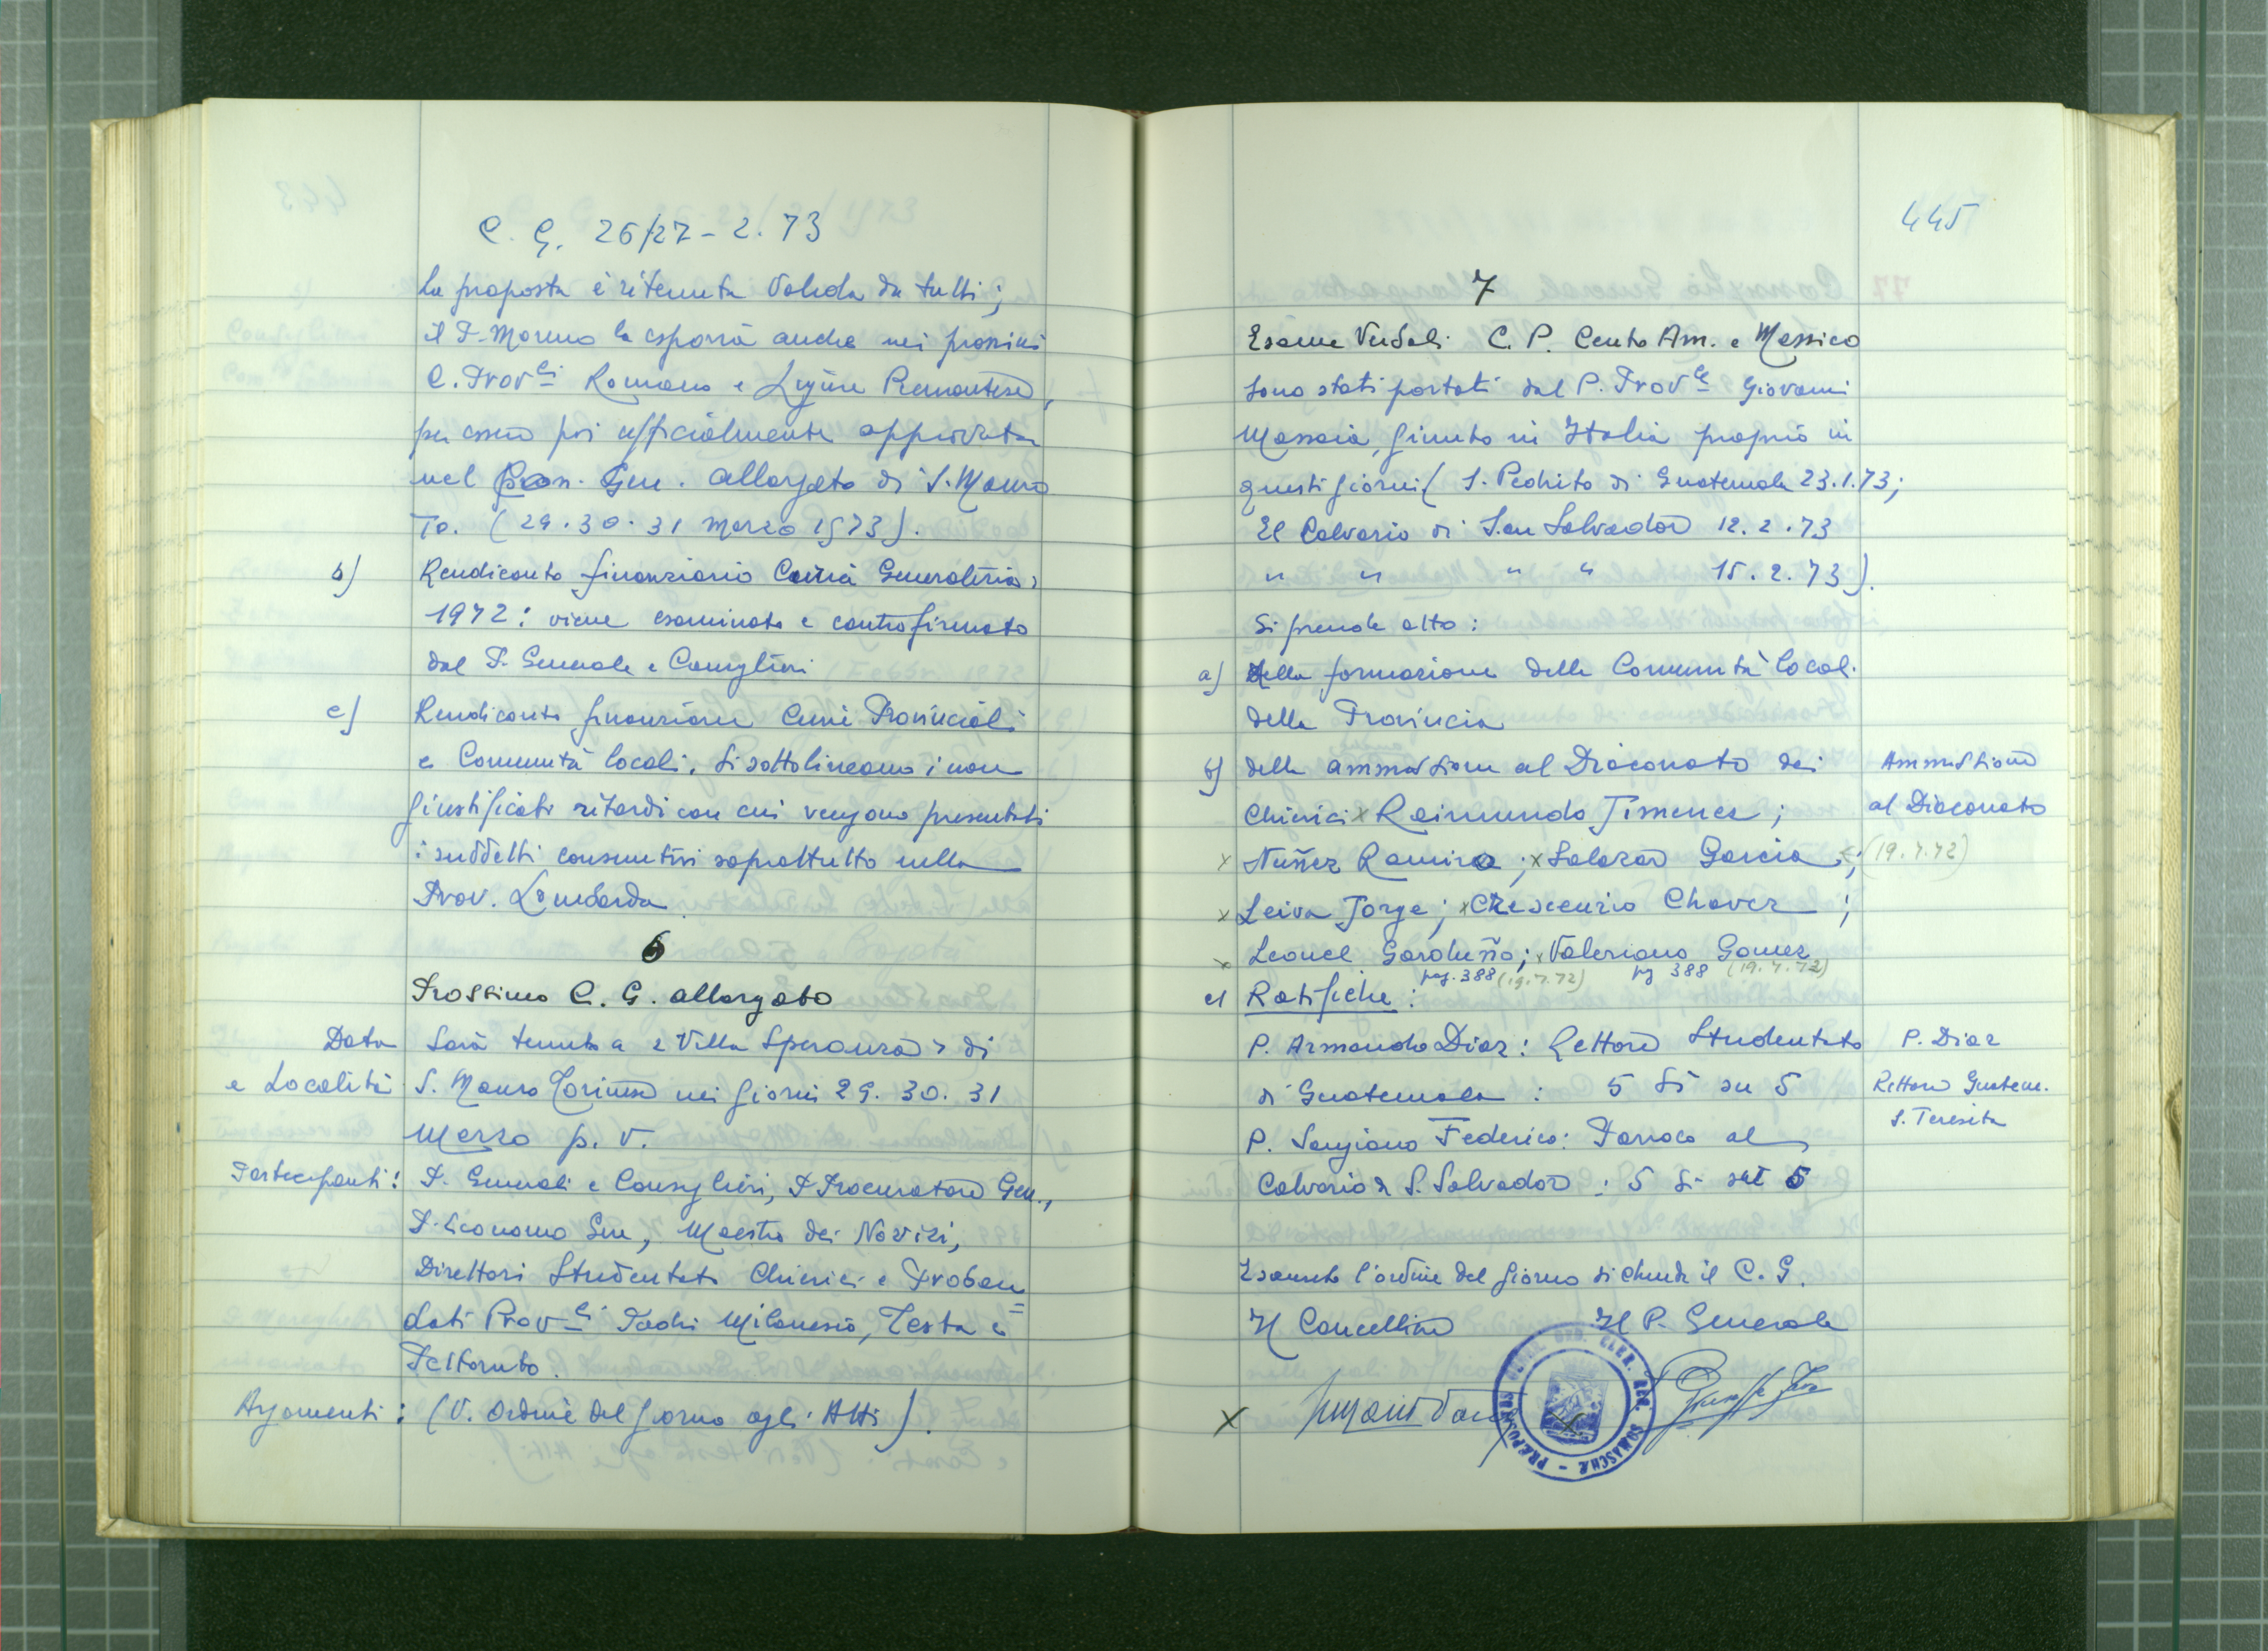 C. G. 26/27 - 2. 73
La proposta è ritenuta valida da tutti;
il P. Moreno la esporrà anche nei prossimi
C. Prov.li Romano e Ligure Piemontese,
per essere poi ufficialmente approvata
nel Con. Gen. allargato di S. Mauro
To. (29. 30. 31 Marzo 1973).
b) Rendiconto finanziario Curia Generalizia,
1972: viene esaminato e controfirmato
dal P. Generale e Consiglieri
c) Rendiconto finanziario Curie Provinciali
e Comunità locali. Si sottolineano i non
giustificati ritardi con cui vengono presentati
i suddetti consuntivi soprattutto nella
Prov. Lombarda.
6
Prossimo C. G. allargato
Data Sarà tenuto a "Villa Speranza" di
e Località S. Mauro Torinese nei giorni 29. 30. 31
Marzo p. v.
Partecipanti: P. Generali e Consiglieri, P. Procuratore Gen.,
P. Economo Gen, Maestro dei Novizi,
Direttori Studentato Chierici e Proban=
dati Prov.li Padri Milanese, Testa e
Peltornto.
Argomenti: (V. Ordine del giorno agli Atti).
445
7
Esame Verbali C. P. Centro Am. e Messico
Sono stati portati dal P. Prov.le Giovanni
Massaia, giunto in Italia proprio in
questi giorni ( S. Pedrito di Guatemala 23.1.73;
El Calvario di San Salvador 12. 2. 73
" " " " 15. 2. 73).
Si prende atto:
a) della formazione delle Comunità locali
della Provincia
b) della ammissione al Diaconato dei Ammissione
Chierici x Raimundo Jimenez; al Diaconato
x Nuñez Ramiro; x Salazar Garcia; (19.7.72)
x Leiva Jorge; x Crescenzio Chavez;
x Leonel Garduño; x Valeriano Gomez
pag. 388 (19.7.72) pg 388 (19.7.72)
c) Ratifiche:
P. Armando Diaz: Rettore Studentato P. Diaz
di Guatemala : 5 Sì su 5 Rettore Guatem.
S. Teresita
P. Sangiano Federico: Parroco al
Calvario di S. Salvador : 5 Si su 5
Esaurito l'ordine del giorno si chiude il C. G.
Il Cancelliere Il P. Generale
x
PRAEPOSITUS GENER. ORD. CLER. REG. SOMASCHAE